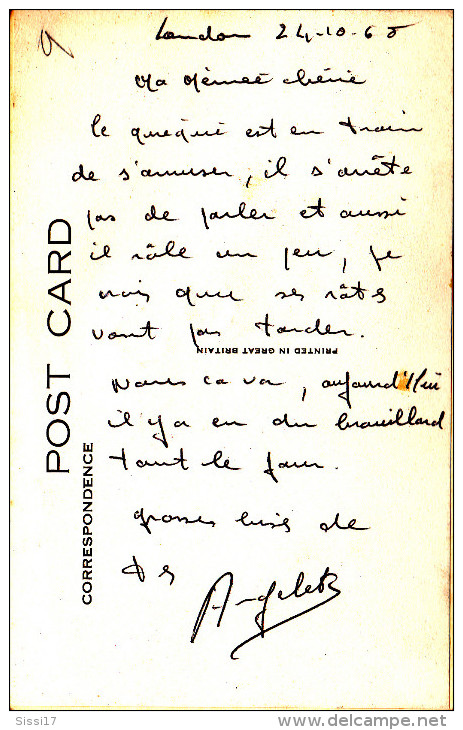 London 24-10-65
Ma Mémée chérie
le quequé est en train
de s'amuser, il s'arrête
pas de parler et aussi
il râle un peu, je
crois que ses râts
vont pas tarder.
PRINTED IN GREAT BRITAIN
Nous ca va, aujourd'hui
il y a eu du brouillard
tout le jour.
grosses bises de
POST CARD
CORRESPONDENCE
Sissi17
delcampe.net